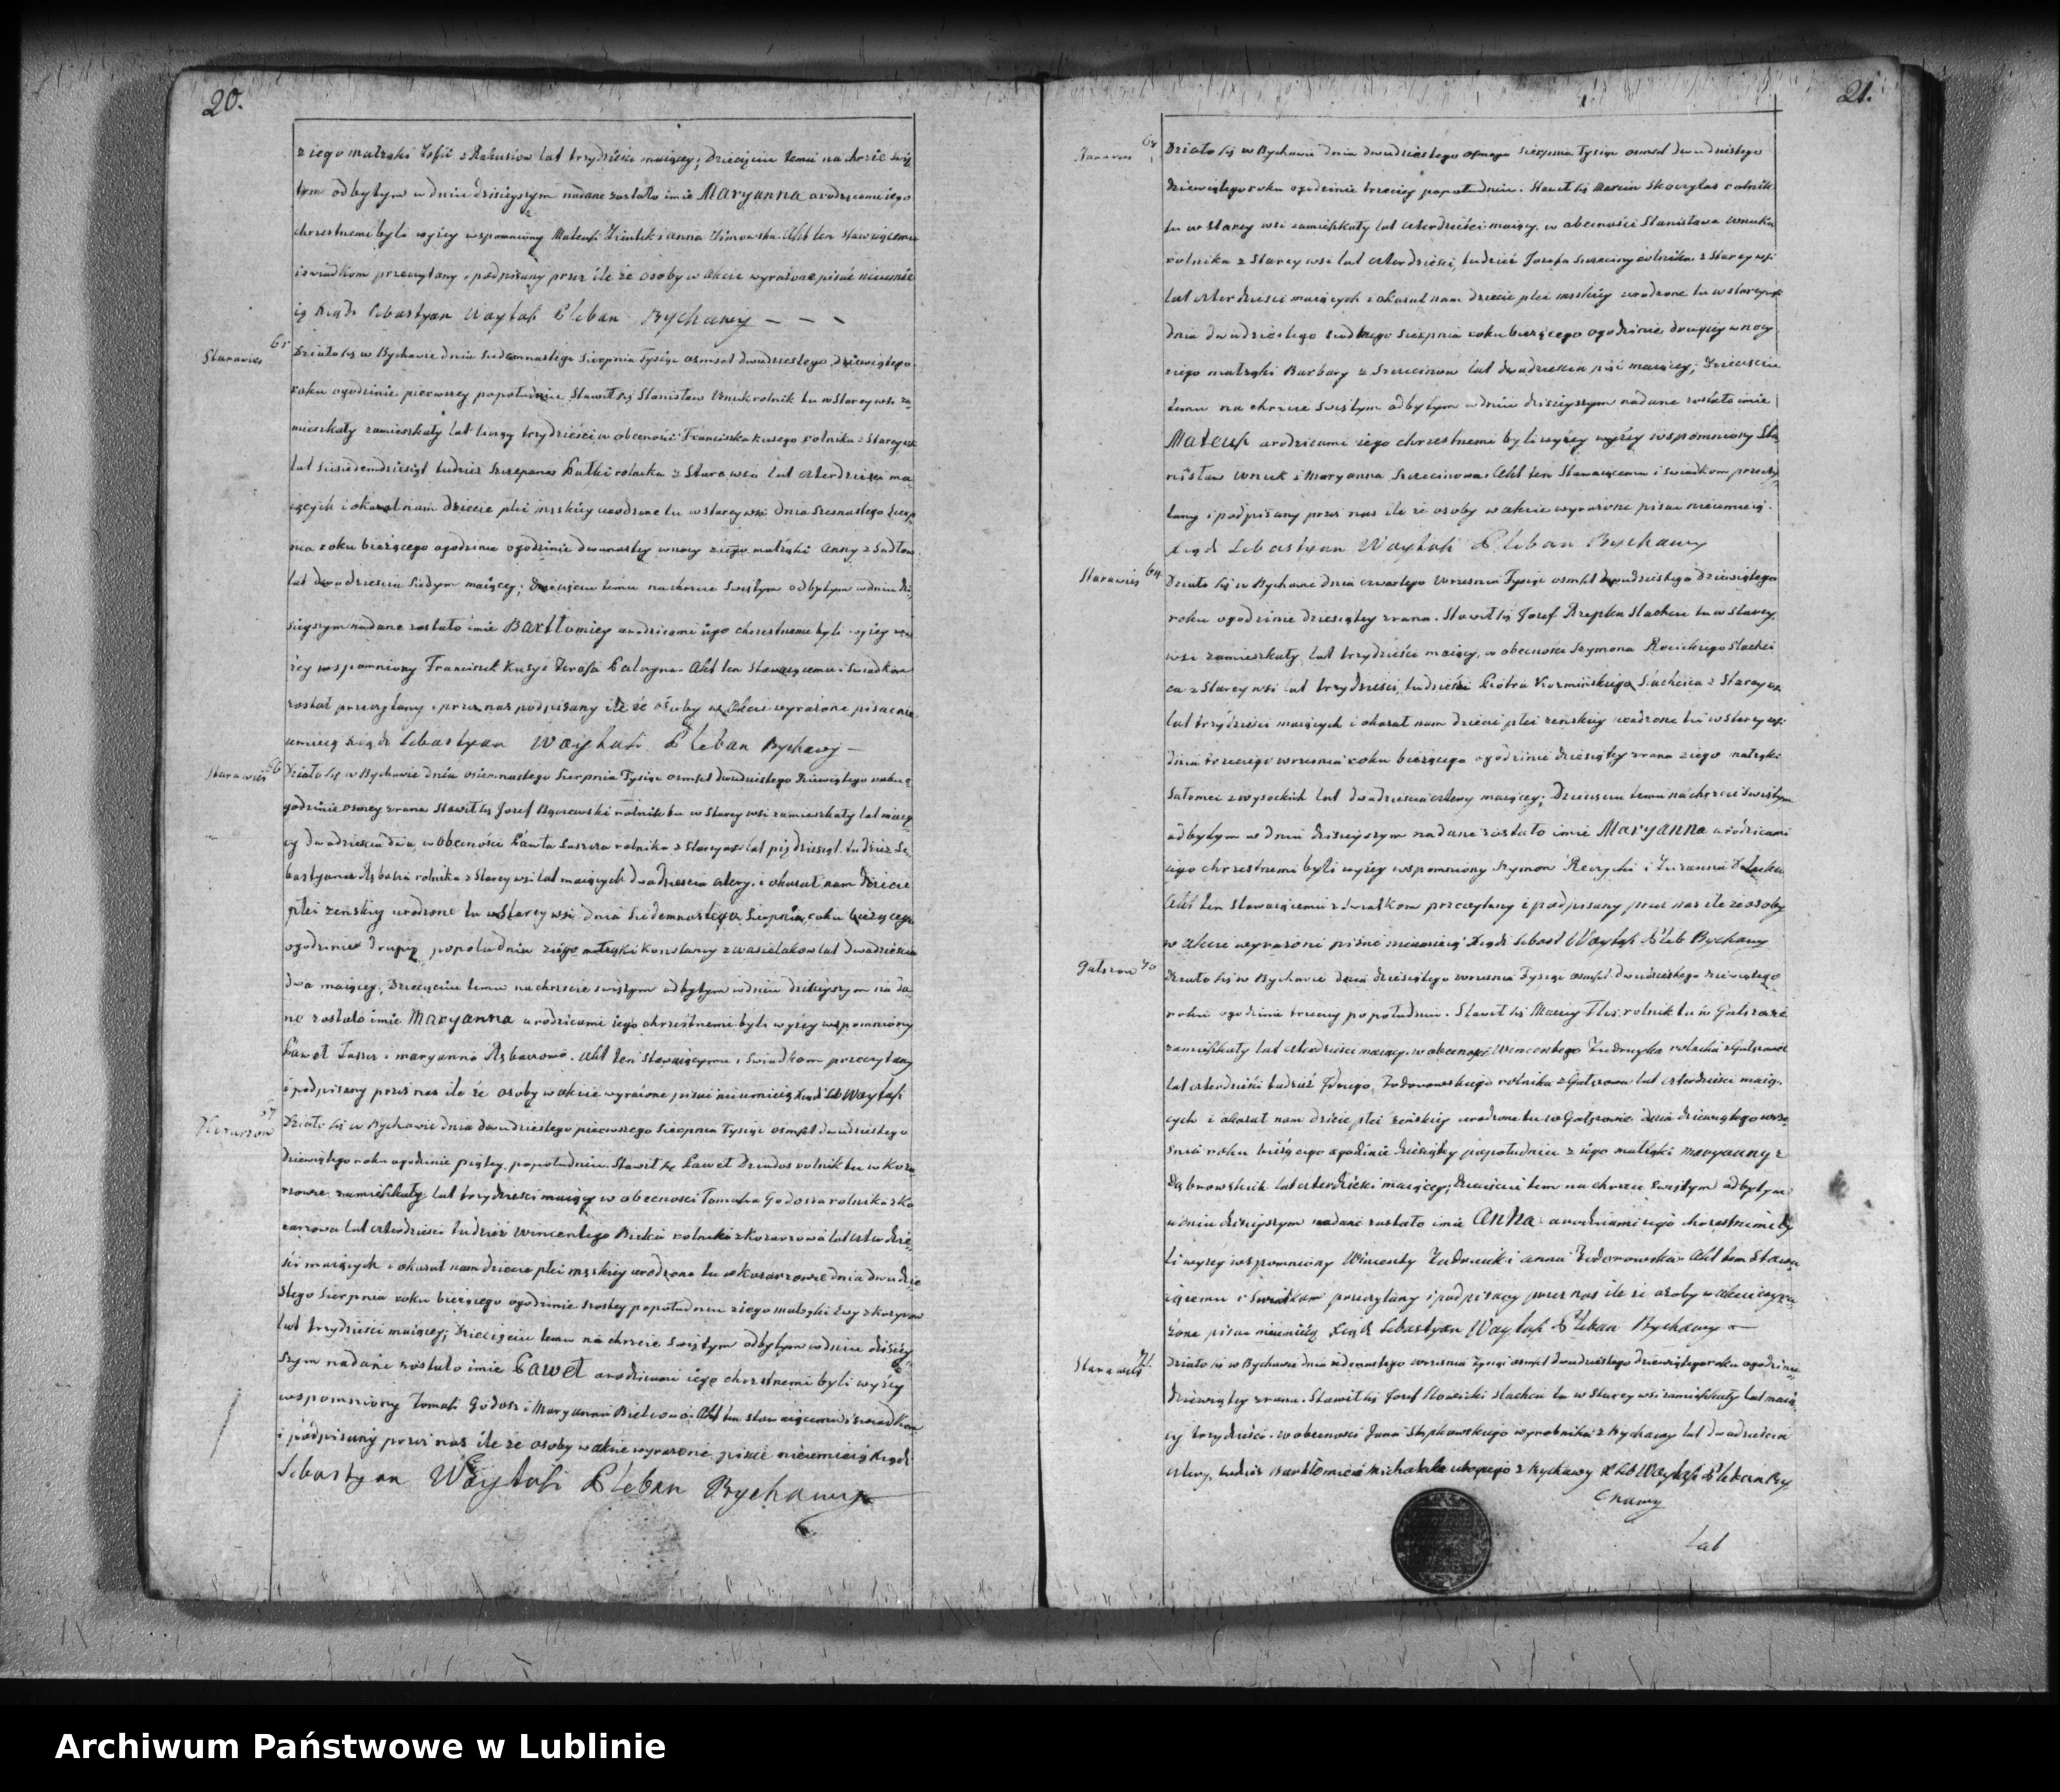 20.
z iego małżąki Zofii z Rakusiow lat trzydzieści maiącey; Dziecięciu temu na chrzcie świę
tym odbytym w dniu dzisieyszym nadane zostało imie Maryanna a rodzicami iego
chrzestnemi byli wyżey wspomniony Mateusz i Anna Akt ten stawaiącemu
i swiadkom przeczytany i podpisany przez ile że osoby w akcie wyrażone pisać nieumie
ią Xiądz Sebastyan Woytasz Pleban Bychawy
Starawieś 65
Działo się w Bychawie dnia Siedemnastego Sierpnia Tysiąc osmset dwudziestego dziewiątego
roku ogodzinie pierwszey popołudniu Stawił się Stanisław Wnuk rolnik tu w Starey wsi za
mieszkały zamieszkały lat liczący trzydzieści w obecności Franciszka Kusego rolnika z Starey wsi
lat siedemdziesiąt tudzież Szczepana Pałki rolnika z Stara wsia lat czterdzieści ma
iących i okazał nam dziecie płci męskiey urodzone tu w starey wsi dnia szesnastego Sierp
nia roku bieżącego ogodzinie ogodzinie dwunastey wnocy z iego małżąki Anny z Sadłow
lat dwadziescia siedym maiącey; Dziecięciu temu na chrzcie świętym odbytym w dniu dzi
sieyszym nadane zostało imie Bartłomiey a rodzicami iego chrzestnemi byli wyżey wy
żey wspomniony Franciszek Kusy i Akt ten stawaiącemu i świadkom
został przeczytany i przez nas podpisany ile że osoby w Akcie wyrażone pisac nie
umieią Xiądz Sebastyan Woytasz Pleban Bychawy
Starawieś 66
Działo się w Bychawie dnia osiemnastego Sierpnia Tysiąc osmset dwudziestego dziewiątego roku o
godzinie osmey zrana Stawił się Jozef rolnik tu w Starey wsi zamieszkały lat maią
cy dwadziescia dwa, w obecności Pawła rolnika z Starey wsi lat pięćdziesiąt tudzież Se
bastyana rolnika z Starey wsi lat maiących dwadziescia cztery, i okazał nam dziecie
płci żeńskiey urodzone tu w Starey wsi dnia Siedemnastego Sierpnia roku bieżącego
ogodzinie drugiey popołudniu z iego małżąki Konstancy z Wasielakow lat dwadziescia
dwa maiącey, Dziecięciu temu na chrzcie świętym odbytym w dniu dzisieyszym nada
ne zostało imie Maryanna a rodzicami iego chrzestnemi byli wyżey wspomniony
Paweł i Maryanna Akt ten stawaiącemu i świadkom przeczytany
i podpisany przez nas ile że osoby w akcie wyrażone pisać nieumieią Xiądz Seb Woytasz
67
Działo się w Bychawie dnia dwudziestego pierwszego Sierpnia Tysiąc osmset dwudziestego
dziewiątego roku ogodzinie piątey popołudniu Stawił się Paweł Dziados rolnik tu w Koza
rzowie zamieszkały lat trzydzieści maiący w obecności Tomasza Godosza rolnika z Ko
zarzowa lat czterdzieści tudzież Wincentego rolnika z Kozarzowa lat czterdzie
ści maiących i okazał nam dziecie płci męskiey urodzone tu w Kozarzowie dnia dwudzie
stego Sierpnia roku bieżącego ogodzinie szostey popołudniu z iego małżąki Ewy
lat trzydzieści maiącey; Dziecięciu temu na chrzcie świętym odbytym w dniu dzisiey
szym nadane zostało imie Paweł a rodzicami iego chrzestnemi byli wyżey
wspomniony Tomasz Godosz i Maryanna Akt ten stawaiącemu i świadkom
i podpisany przez nas ile że osoby w akcie wyrażone pisać nieumieią Xiądz
Sebastyan Woytasz Pleban Bychawy
21.
68
Działo się w Bychawie dnia dwudziestego osmego Sierpnia Tysiąc osmset dwudziestego
dziewiątego roku ogodzinie trzeciey popołudniu. Stawił się Marcin Skoczylas rolnik
tu w Starey wsi zamieszkały lat czterdzieści maiący, w obecności Stanisława Wnuka
rolnika z Starey wsi lat czterdzieści, tudzież Jozefa rolnika z Starey wsi
lat czterdzieści maiących i okazał nam dziecie płci męskiey urodzone tu w starey wsi
dnia dwudziestego siudmego Sierpnia roku bieżącego ogodzinie drugiey w nocy
z iego małżąki Barbary z Szczecinow lat dwadziescia pięć maiącey; Dziecięciu
temu na chrzcie świętym odbytym w dniu dzisieyszym nadane zostało imie
Mateusz a rodzicami iego chrzestnemi byli wyżey wyżey wspomniony Sta
nisław Wnuk i Maryanna Szczecinowa Akt ten Stawaiącemu i świadkom przeczy
tany i podpisany przez nas ile że osoby w akcie wyrażone pisac nieumieią.
Xiądz Sebastyan Woytasz Pleban Bychawy
Starawieś 69.
Działo się w Bychawie dnia czwartego Września Tysiąc osmset dwudziestego dziewiątego
roku ogodzinie dziesiątey zrana. Stawił się Jozef Rzepka Slachcic tu w Starey
wsi zamieszkały lat trzydzieści maiący, w obecności Szymona Slachci
ca z Starey wsi lat trzydzieści, tudzież Piotra Kozminskiego Slachcica z Starey wsi
lat trzydzieści maiących i okazał nam dziecie płci żeńskiey urodzone tu w Starey wsi
dnia trzeciego września roku bieżącego ogodzinie dziesiątey zrana z iego małżąki
Salomei z Wysockich lat dwadziescia cztery maiącey; Dziecięciu temu na chrzcie świętym
odbytym w dniu dzisieyszym nadane zostało imie Maryanna a rodzicami
iego chrzestnemi byli wyżey wspomniony Szymon i Zuzanna
Akt ten stawaiącemu i świadkom przeczytany i podpisany przez nas ile że osoby
w akcie wyrażone pisać nieumieią Xiądz Sebast Woytasz Pleb Bychawy
70
Działo się w Bychawie dnia dziesiątego września Tysiąc osmset dwudziestego dziewiątego
roku ogodzinie trzeciey popołudniu. Stawił się Maciey rolnik tu w
zamieszkały lat czterdzieści maiący, w obecności Wincentego rolnika
lat czterdzieści tudzież rolnika lat czterdzieści maią
cych i okazał nam dziecie płci żeńskiey urodzone tu w dnia dziewiątego wrze
śnia roku bieżącego ogodzinie dziesiątey popołudniu z iego małżąki Maryanny z
Dąbrowskich lat czterdzieści maiącey; Dziecięciu tem na chrzcie świętym odbytym
w dniu dzisieyszym nadane zostało imie Anna a rodzicami iego chrzestnemi by
li wyżey wspomniony Wincenty i Anna Akt ten Stawa
iącemu i świadkom przeczytany i podpisany przez nas ile że osoby w akcie wyra
żone pisac nieumieią Xiądz Sebastyan Woytasz Pleban Bychawy
Starawieś 71.
Działo się w Bychawie dnia iedenastego września Tysiąc osmset dwudziestego dziewiątego roku ogodzinie
dziewiątey zrana. Stawił się Jozef slachcic tu w Starey wsi zamieszkały lat maią
cy trzydzieści, w obecności Jana wyrobnika z Bychawy lat dwadziescia
cztery, tudzież Bartłomieia z Bychawy X Seb Woytasz Pleban By
chawy
Lat
Archiwum Państwowe w Lublinie